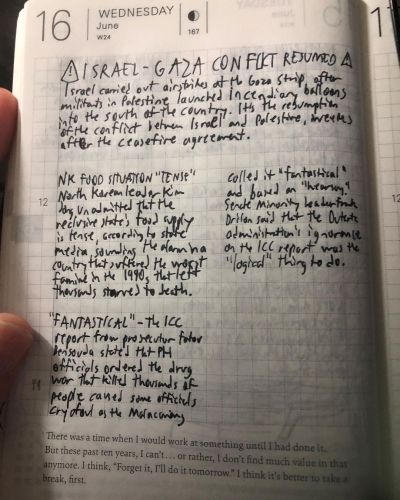 16
WEDNESDAY
June
W24
167
⚠ ISRAEL-GAZA CONFLICT RESUMED ⚠
Israel carried out airstrikes at the Gaza strip, after
militants in Palestine launched incendiary balloons
into the south of the country. Its the resumption
of the conflict between Israel and Palestine, weeks
after the ceasefire agreement.
NK FOOD SITUATION "TENSE"
North Korean leader Kim
Jong Un admitted that the
reclusive state's food supply
is tense, according to state
media, sounding the alarm in a
country that suffered the worst
famine in the 1990, that left
thousands starved to death.
"FANTASTICAL" - the ICC
report from prosecutor Fatou
Bensouda stated that PH
officials ordered the drug
war that killed thousands of
people caused some officials
cry foul as the Malacañang
called it "fantastical"
and based on "hearsay."
Senate Minority Leader Frank
Drilon said that the Duterte
administration's ignorance
on the ICC report was the
"logical" thing to do.
12
There was a time when I would work at something until I had done it.
But these past ten years, I can't... or rather, I don't find much value in that
anymore. I think, "Forget it, I'll do it tomorrow." I think it's better to take a
break, first.
12